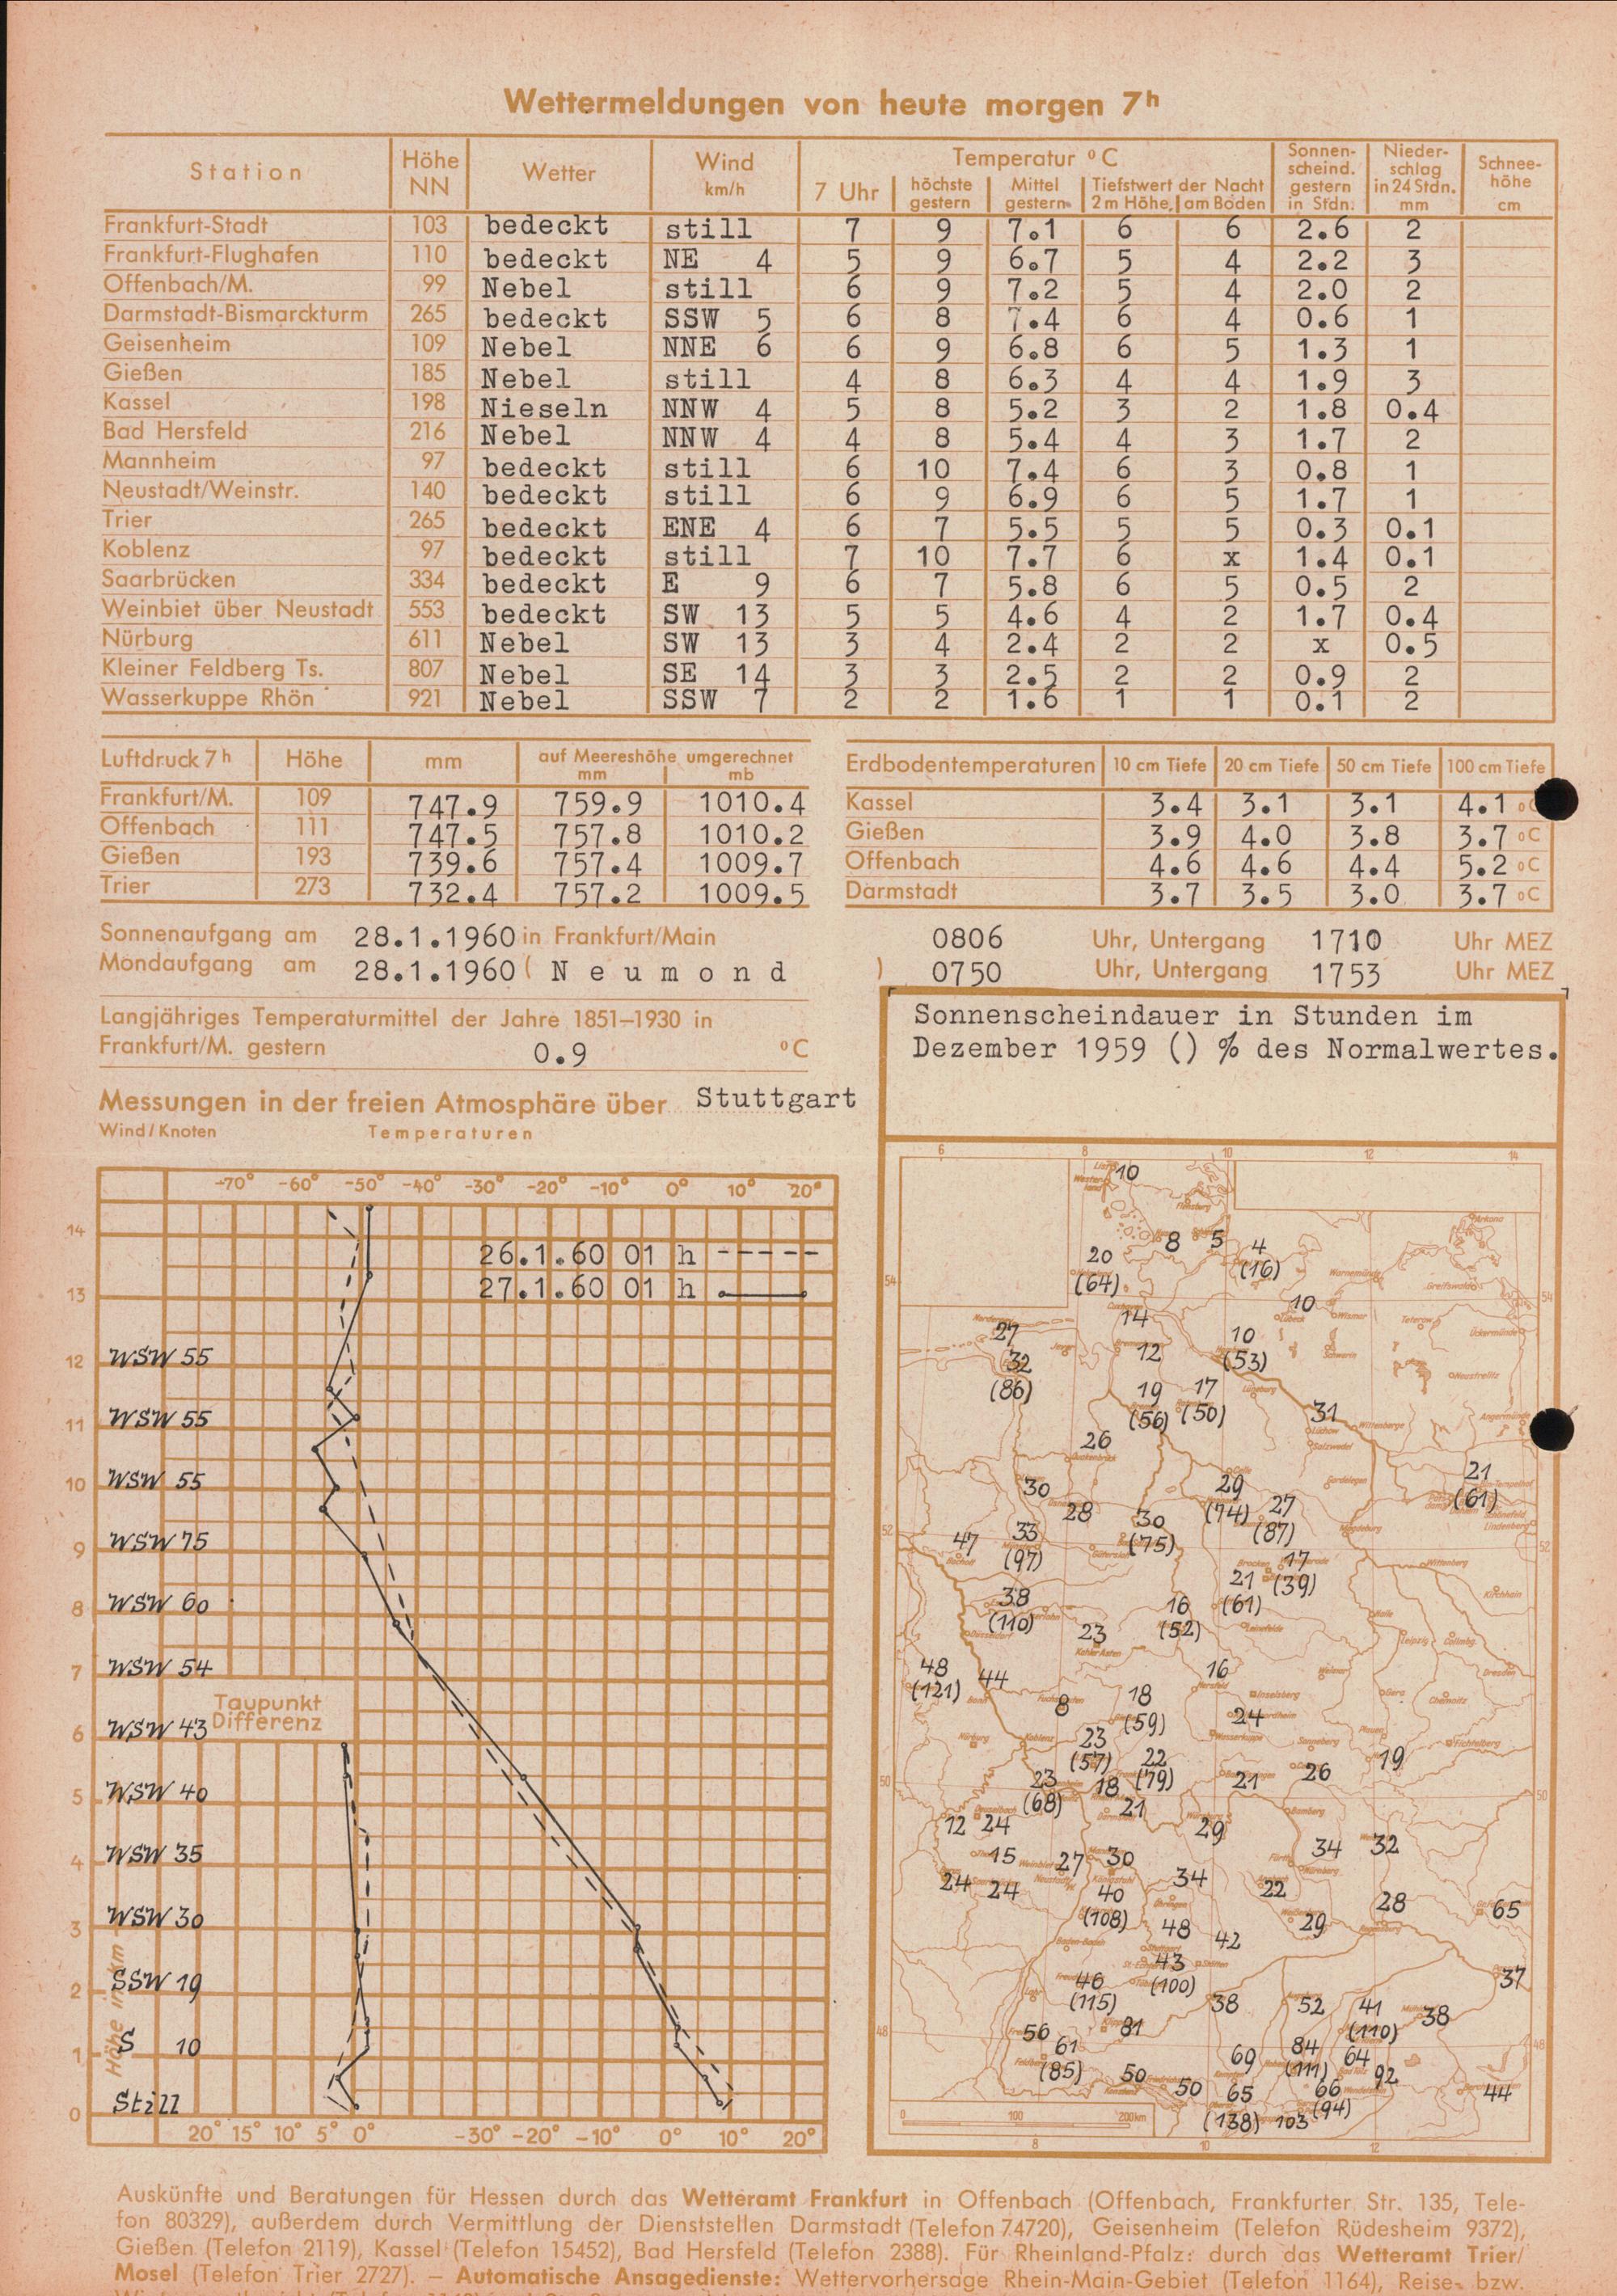 Wettermeldungen von heute morgen 7h
Station Höhe NN Wetter Wind km/h Temperatur °C Sonnen-scheind. gestern in Stdn. Nieder-schlag in 24 Stdn. mm Schnee-höhe cm
7 Uhr höchste gestern Mittel gestern Tiefstwert der Nacht 2 m Höhe, am Boden
Frankfurt-Stadt 103 bedeckt still 7 9 7.1 6 6 2.6 2
Frankfurt-Flughafen 110 bedeckt NE 4 5 9 6.7 5 4 2.2 3
Offenbach/M. 99 Nebel still 6 9 7.2 5 4 2.0 2
Darmstadt-Bismarckturm 265 bedeckt SSW 5 6 8 7.4 6 4 0.6 1
Geisenheim 109 Nebel NNE 6 6 9 6.8 6 5 1.3 1
Gießen 185 Nebel still 4 8 6.3 4 4 1.9 3
Kassel 198 Nieseln NNW 4 5 8 5.2 3 2 1.8 0.4
Bad Hersfeld 216 Nebel NNW 4 4 8 5.4 4 3 1.7 2
Mannheim 97 bedeckt still 6 10 7.4 6 3 0.8 1
Neustadt/Weinstr. 140 bedeckt still 6 9 6.9 6 5 1.7 1
Trier 265 bedeckt ENE 4 6 7 5.5 5 5 0.3 0.1
Koblenz 97 bedeckt still 7 10 7.7 6 x 1.4 0.1
Saarbrücken 334 bedeckt E 9 6 7 5.8 6 5 0.5 2
Weinbiet über Neustadt 553 bedeckt SW 13 5 5 4.6 4 2 1.7 0.4
Nürburg 611 Nebel SW 13 3 4 2.4 2 2 x 0.5
Kleiner Feldberg Ts. 807 Nebel SE 14 3 3 2.5 2 2 0.9 2
Wasserkuppe Rhön 921 Nebel SSW 7 2 2 1.6 1 1 0.1 2
Luftdruck 7h Höhe mm auf Meereshöhe umgerechnet mm mb
Frankfurt/M. 109 747.9 759.9 1010.4
Offenbach 111 747.5 757.8 1010.2
Gießen 193 739.6 757.4 1009.7
Trier 273 732.4 757.2 1009.5
Erdbodentemperaturen 10 cm Tiefe 20 cm Tiefe 50 cm Tiefe 100 cm Tiefe
Kassel 3.4 3.1 3.1 4.1 °C
Gießen 3.9 4.0 3.8 3.7 °C
Offenbach 4.6 4.6 4.4 5.2 °C
Darmstadt 3.7 3.5 3.0 3.7 °C
Sonnenaufgang am 28.1.1960 in Frankfurt/Main 0806 Uhr, Untergang 1710 Uhr MEZ
Mondaufgang am 28.1.1960 ( Neumond ) 0750 Uhr, Untergang 1753 Uhr MEZ
Langjähriges Temperaturmittel der Jahre 1851–1930 in
Frankfurt/M. gestern 0.9 °C
Messungen in der freien Atmosphäre über Stuttgart
Wind/Knoten Temperaturen
-70° -60° -50° -40° -30° -20° -10° 0° 10° 20°
14
26.1.60 01 h
27.1.60 01 h
13
12 WSW 55
11 WSW 55
10 WSW 55
9 WSW 75
8 WSW 60
7 WSW 54
Taupunkt
Differenz
6 WSW 43
5 WSW 40
4 WSW 35
3 WSW 30
2 SSW 19
1 S 10
0 Still
Höhe in km
20° 15° 10° 5° 0° -30° -20° -10° 0° 10° 20°
Sonnenscheindauer in Stunden im
Dezember 1959 () % des Normalwertes.
6 8 10 12 14
10
8 5 4
20 (16)
(64)
54 54
10
14
27 10
12 (53)
32
(86)
19 17
(56) (50)
31
26
21
30 29 (61)
28 (74) 27
30 (87)
33 (75)
47 (97)
52 52
17
21 (39)
38 (61)
(110) 16
23 (52)
48 16
(121) 44
8 18
(59) 24
23
(57) 22 19
23 18 (79) 21 26
(68) 21
50 50
12 24 29
34 32
15 27 30
24 24 34 22
40 28
(108) 65
48 29
42
43
46 (100) 37
(115) 38 52 41 38
56 81 (110)
48 48
61 84
(85) 69 (111) 64
50 92
50 65 66 44
(138) 103 (94)
0 100 200 km
8 10 12
Auskünfte und Beratungen für Hessen durch das Wetteramt Frankfurt in Offenbach (Offenbach, Frankfurter Str. 135, Tele-
fon 80329), außerdem durch Vermittlung der Dienststellen Darmstadt (Telefon 74720), Geisenheim (Telefon Rüdesheim 9372),
Gießen (Telefon 2119), Kassel (Telefon 15452), Bad Hersfeld (Telefon 2388). Für Rheinland-Pfalz: durch das Wetteramt Trier/
Mosel (Telefon Trier 2727). — Automatische Ansagedienste: Wettervorhersage Rhein-Main-Gebiet (Telefon 1164), Reise- bzw.